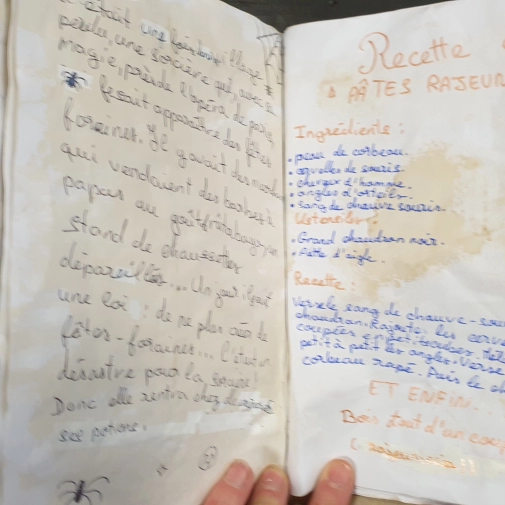 était une fois un village
perdu, une sorcière qui, avec sa
magie, près de l'opéra de paris,
fesait apparaître des fêtes
foraines. Il y avait des
qui vendaient des barbes à
papas au goût
stand de chaussettes
dépareillés... Un jour il fait
une loi : de ne plus de
fêtes-foraines... C'était un
désastre pour la
Donc elle rentra chez
ses potions.
Recette
PÂTES RAJEUN
Ingrédients :
• peau de corbeau.
• cervelles de souris.
• cheveux d'homme.
• ongles d'orteils.
• sang de chauve souris.
Ustensiles :
• Grand chaudron noir.
• Patte d'aigle.
Recette :
Verse le sang de chauve-sou
chaudron. Rajoute les cerve
coupées
petit à petit les ongles. Verse
corbeau rapé. Puis le ch
ET ENFIN...
Bois tout d'un coup